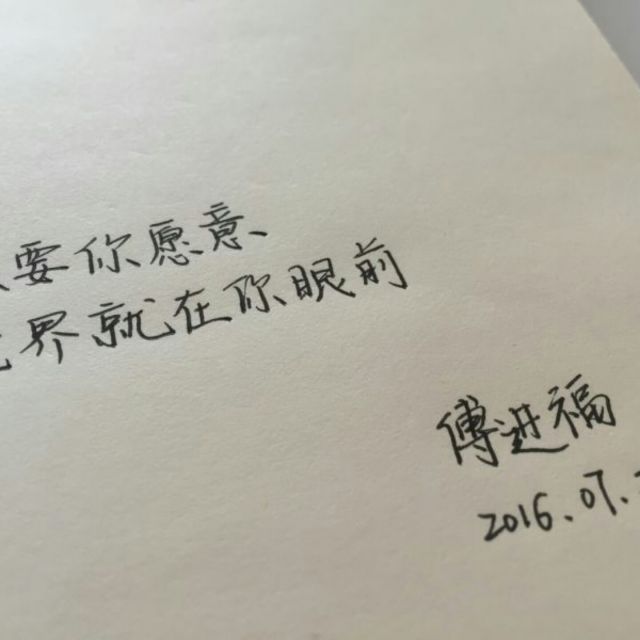 要你愿意
界就在你眼前
傅进福
2016.07.